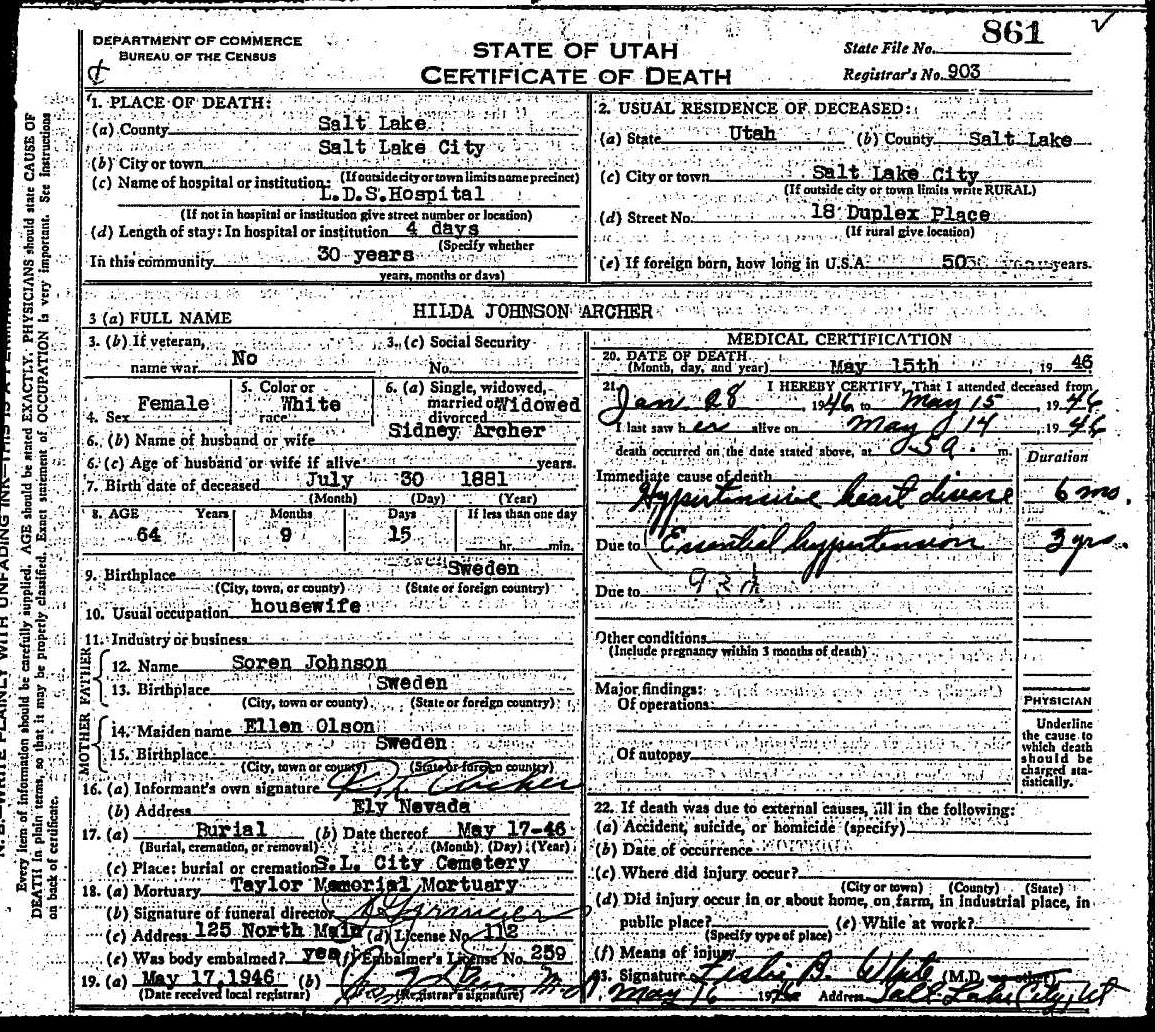 861
DEPARTMENT OF COMMERCE
BUREAU OF THE CENSUS
STATE OF UTAH
CERTIFICATE OF DEATH
State File No.
Registrar's No. 903
1. PLACE OF DEATH:
(a) County Salt Lake
Salt Lake City
(b) City or town
(If outside city or town limits name precinct)
(c) Name of hospital or institution: L.D.S.Hospital
(If not in hospital or institution give street number or location)
(d) Length of stay: In hospital or institution 4 days
(Specify whether
In this community 30 years
years, months or days)
2. USUAL RESIDENCE OF DECEASED:
(a) State Utah (b) County Salt Lake
(c) City or town Salt Lake City
(If outside city or town limits write RURAL)
(d) Street No. 18 Duplex Place
(If rural give location)
(e) If foreign born, how long in U.S.A. 50 years.
3 (a) FULL NAME HILDA JOHNSON ARCHER
3. (b) If veteran,
name war No
3. (c) Social Security
No.
4. Sex Female
5. Color or
race White
6. (a) Single, widowed,
married or Widowed
divorced
6. (b) Name of husband or wife Sidney Archer
6. (c) Age of husband or wife if alive years.
7. Birth date of deceased July 30 1881
(Month) (Day) (Year)
8. AGE Years Months Days If less than one day
64 9 15 hr. min.
9. Birthplace Sweden
(City, town, or county) (State or foreign country)
10. Usual occupation housewife
11. Industry or business
FATHER
12. Name Soren Johnson
13. Birthplace Sweden
(City, town or county) (State or foreign country)
MOTHER
14. Maiden name Ellen Olson
15. Birthplace Sweden
(City, town or county) (State or foreign country)
16. (a) Informant's own signature Archer
(b) Address Ely Nevada
17. (a) Burial (b) Date thereof May 17-46
(Burial, cremation, or removal) (Month) (Day) (Year)
(c) Place: burial or cremation S.L. City Cemetery
18. (a) Mortuary Taylor Memorial Mortuary
(b) Signature of funeral director
(c) Address 125 North Main (d) License No. 112
(e) Was body embalmed? yes (f) Embalmer's License No. 259
19. (a) May 17,1946 (b)
(Date received local registrar) (Registrar's signature)
MEDICAL CERTIFICATION
20. DATE OF DEATH
(Month, day, and year) May 15th 19 46
21. I HEREBY CERTIFY, That I attended deceased from
Jan. 28, 1946 to May 15, 1946
I last saw her alive on May 14, 1946
death occurred on the date stated above, at m.
Duration
Immediate cause of death
Hypertensive heart disease 6 mo.
Due to Essential hypertension 3 yrs.
Due to
Other conditions
(Include pregnancy within 3 months of death)
Major findings:
Of operations
Of autopsy
PHYSICIAN
Underline
the cause to
which death
should be
charged sta-
tistically.
22. If death was due to external causes, fill in the following:
(a) Accident, suicide, or homicide (specify)
(b) Date of occurrence
(c) Where did injury occur?
(City or town) (County) (State)
(d) Did injury occur in or about home, on farm, in industrial place, in
public place? (e) While at work?
(Specify type of place)
(f) Means of injury
23. Signature Leslie B. White (M.D.
May 16 1946 Address Salt Lake City, Ut
Every item of information should be carefully supplied. AGE should be stated EXACTLY. PHYSICIANS should state CAUSE OF
DEATH in plain terms, so that it may be properly classified. Exact statement of OCCUPATION is very important. See Instructions
on back of certificate.